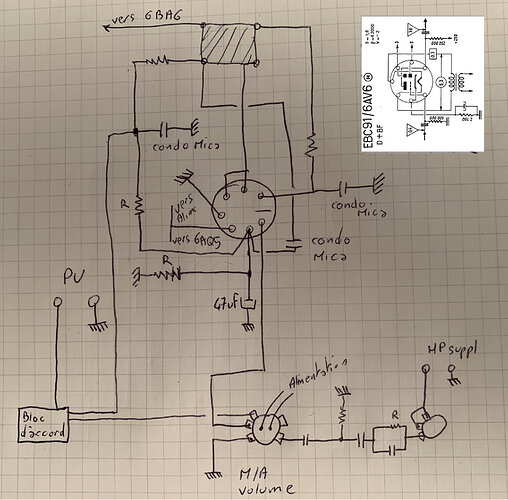 vers 6BA6
condo Mica
condo.
Mica
R
vers
Alim
vers 6AQ5
condo
Mica
R
47uf
PU
HP suppl
Alimentation
R
Bloc
d'accord
M/A
volume
EBC91/6AV6
D+BF